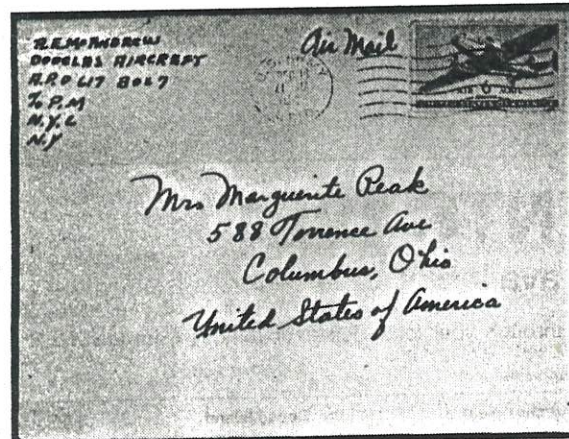 R.E. McAndrew
DOUGLAS AIRCRAFT
A.P.O 617 BOL7
% P.M
N.Y.C
N.Y
Air Mail
AIR 6¢ MAIL
Mrs Marguerite Peak
588 Torrence Ave
Columbus, Ohio
United States of America